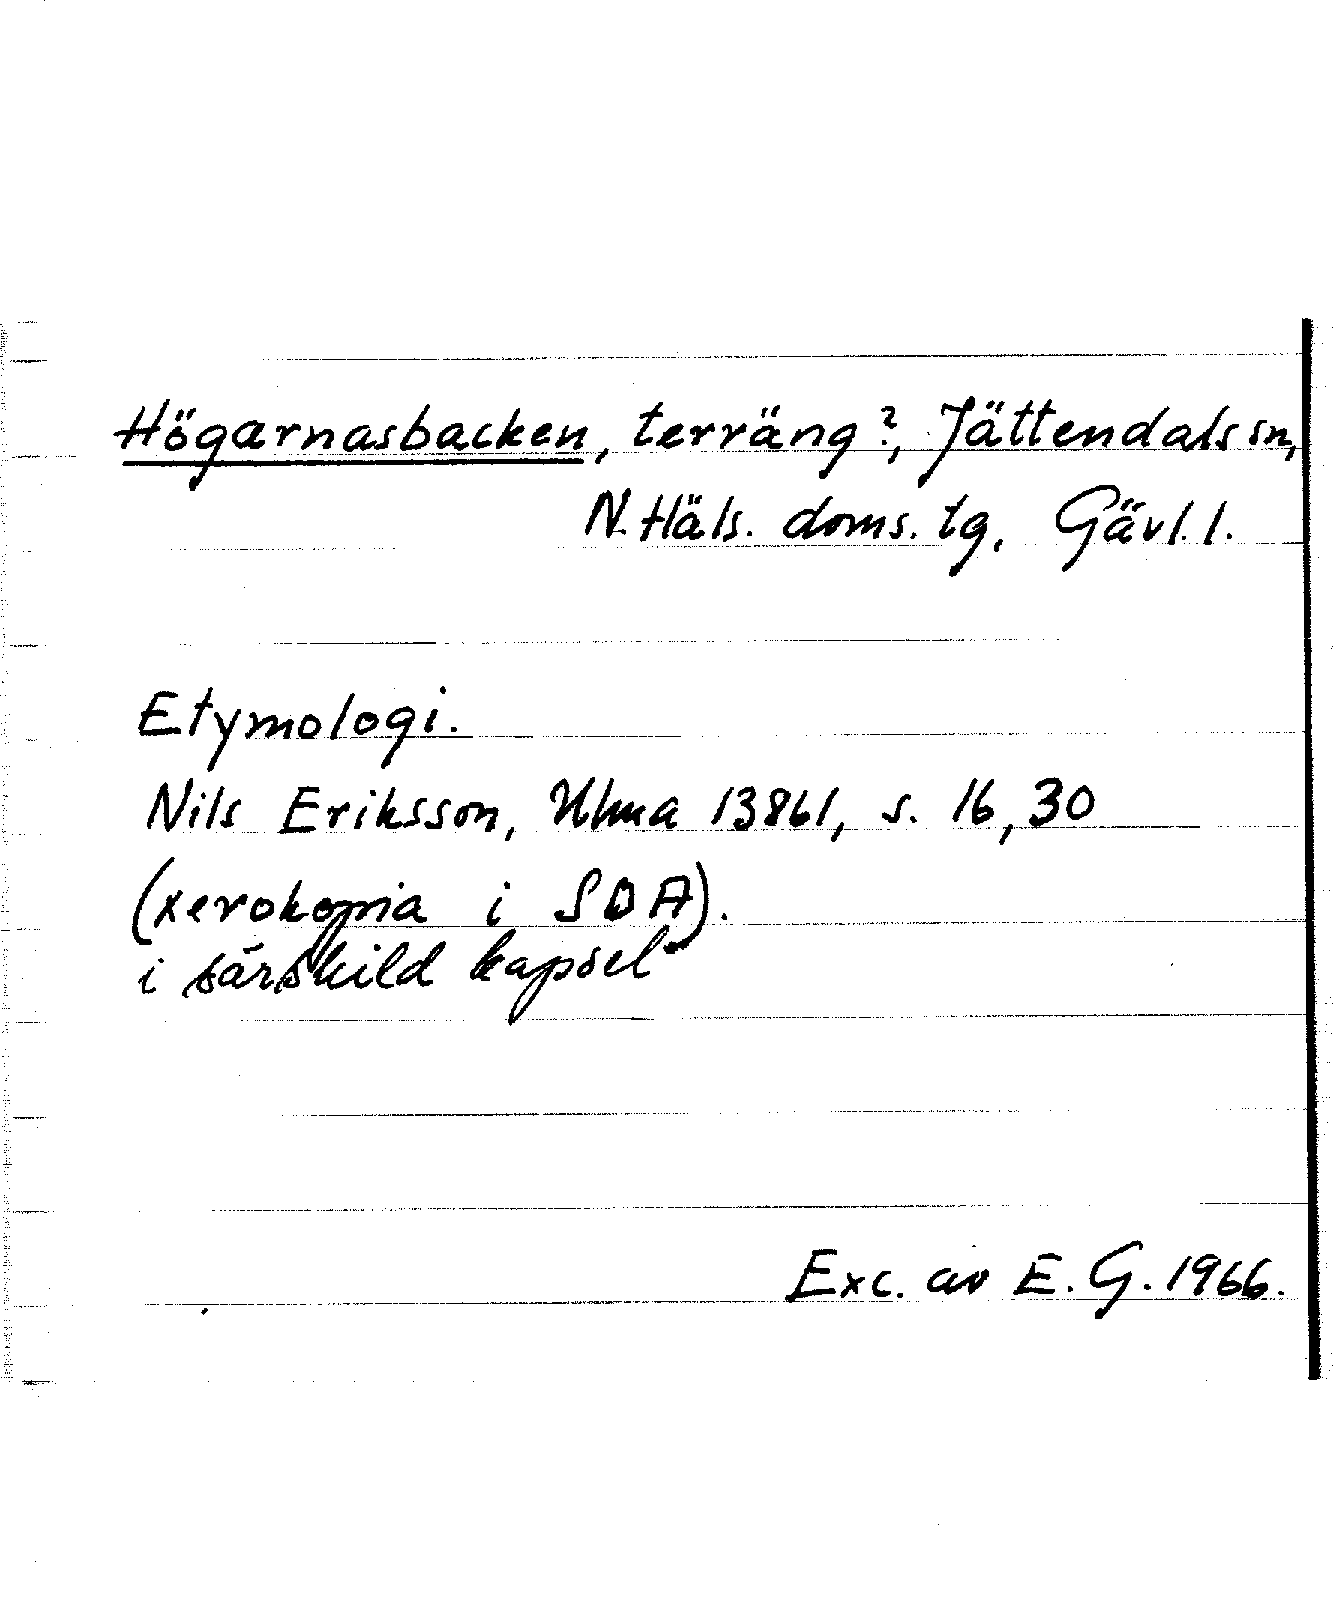 Högarnasbacken, terräng?, Jättendals sn,
N. Häls. doms. tg, Gävl. l.
Etymologi.
Nils Eriksson, Ulma 13861, s. 16, 30
(xerokopia i SOA).
i särskild kapsel
Exc. av E. G. 1966.